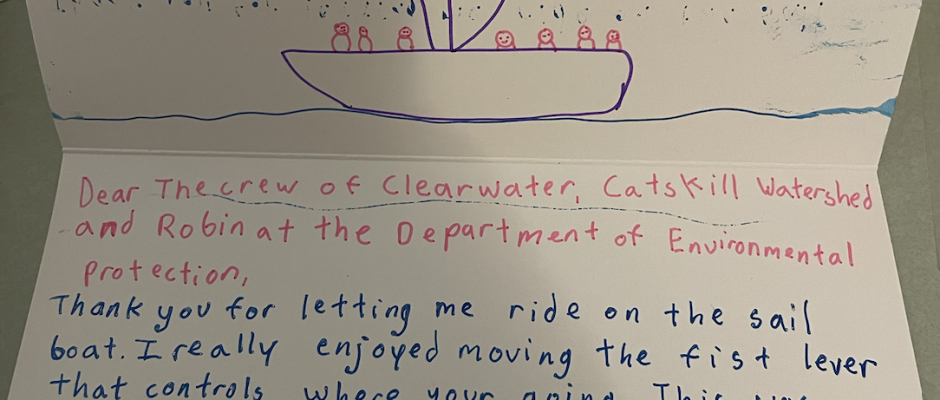 Dear The crew of Clearwater, Catskill Watershed
and Robin at the Department of Environmental
protection,
Thank you for letting me ride on the sail
boat. I really enjoyed moving the fist lever
that controls where your going. This was